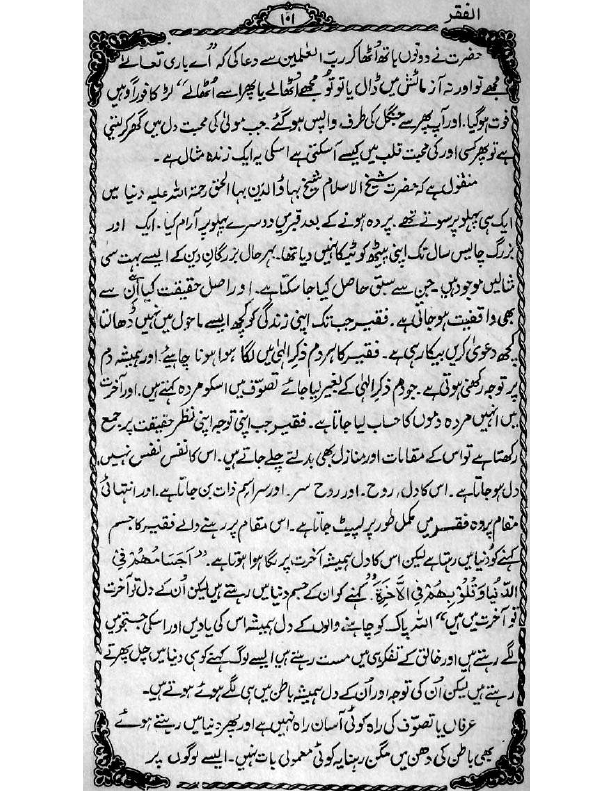 الفقر
۱۰۱
حضرت نے دونوں ہاتھ اُٹھا کر ربّ العٰلمین سے دعا کی کہ "اے باری تعالےٰ
مجھے تو اور نہ آزمائش میں ڈال یا تو تو مجھے اُٹھالے یا پھر اسے اُٹھالے" لڑکا فوراً وہیں
فوت ہو گیا۔ اور آپ پھر سے جنگل کی طرف واپس ہو گئے۔ جب مولیٰ کی محبت دل میں گھر کر لیتی
ہے تو پھر کسی اور کی محبت قلب میں کیسے آسکتی ہے اسکی یہ ایک زندہ مثال ہے۔
منقول ہے کہ حضرت شیخ الاسلام شیخ بہاؤالدین بہاالحق رحمۃ اللہ علیہ دنیا میں
ایک ہی پہلو پر سوتے تھے۔ پردہ ہونے کے بعد قبر میں دوسرے پہلو پر آرام کیا۔ ایک اور
بزرگ چالیس سال تک اپنی پیٹھ کو ٹیکا نہیں دیا تھا۔ بہرحال بزرگانِ دین کے ایسے بہت سی
مثالیں موجود ہیں۔ جن سے سبق حاصل کیا جا سکتا ہے۔ اور اصل حقیقت کیا ان سے
بھی واقفیت ہو جاتی ہے۔ فقیر جب تک اپنی زندگی کو کچھ ایسے ماحول میں نہیں ڈھالتا
کچھ دعویٰ کریں بیکار ہی ہے۔ فقیر کا ہر دم ذکرِ الٰہی میں لگا ہوا ہونا چاہیئے۔ اور ہمیشہ دم
پر توجہ رکھنی ہوتی ہے۔ جو دم ذکرِ الٰہی کے بغیر لیا جائے تصوّف میں اسکو مردہ کہتے ہیں۔ اور آخرت
میں انہیں مردہ دموں کا حساب لیا جاتا ہے۔ فقیر جب اپنی توجہ اپنی نظر حقیقت پر جمع
رکھتا ہے تو اس کے مقامات اور منازل بھی بدلتے چلے جاتے ہیں۔ اس کا نفس نفس نہیں
دل ہو جاتا ہے۔ اس کا دل، روح۔ اور روح سر۔ اور سراسیم ذات بن جاتا ہے۔ اور انتہائی
مقام پردہ فقر میں مکمل طور پر لپیٹ جاتا ہے۔ اس مقام پر رہنے والے فقیر کا جسم
کہنے کو دنیا میں رہتا ہے لیکن اس کا دل ہمیشہ آخرت پر لگا ہوا ہوتا ہے۔ "اَجْسَامُھُمْ فِی
الدُّنْیَا وَقُلُوْبُھُمْ فِی الْاٰخِرَۃِ" کہنے کو ان کے جسم دنیا میں رہتے ہیں لیکن اُن کے دل تو آخرت
تو آخرت میں ہیں" اللہ پاک کو چاہنے والوں کے دل ہمیشہ اس کی یاد میں اور اسکی جستجو میں
لگے رہتے ہیں اور خالق کے تفکر ہی میں مست رہتے ہیں ایسے لوگ کہنے کو ہی دنیا میں چل پھرتے
رہتے ہیں لیکن اُن کی توجہ اور اُن کے دل ہمیشہ باطن میں ہی لگے ہوئے ہوتے ہیں۔
عرفاں یا تصوّف کی راہ کوئی آسان راہ نہیں ہے اور پھر دنیا میں رہتے ہوئے
بھی باطن کی دھن میں مگن رہنا یہ کوئی معمولی بات نہیں۔ ایسے لوگوں پر